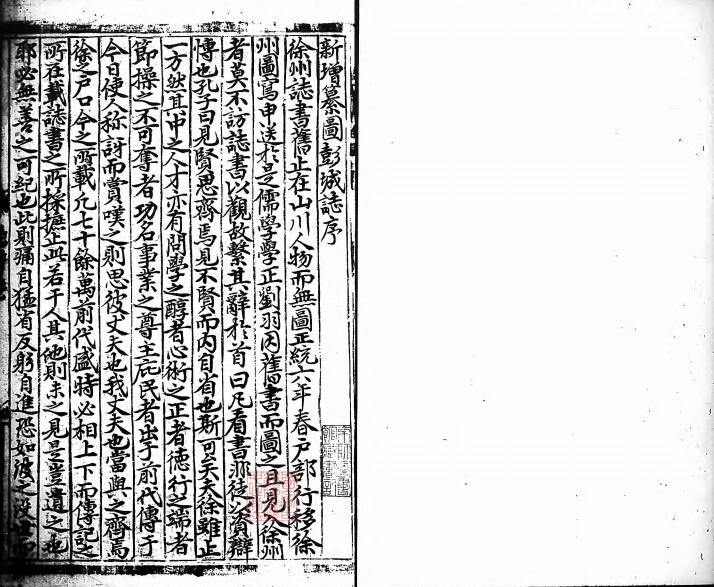 新增纂圖彭城誌序
徐州誌書舊止在山川人物而無圖正統六年春戶部行移徐
州圖寫申送於是儒學學正劉羽因舊書而圖之且見入徐州
者莫不訪誌書以觀故繫其辭於首曰凡看書非徒以資辯
博也孔子曰見賢思齊焉見不賢而內自省也斯可矣夫徐雖止
一方然其中之人才亦有問學之醇者心術之正者德行之端者
節操之不可奪者功名事業之尊主庇民者出于前代傳于
今日使人称訝而賞嘆之則思彼丈夫也我丈夫也當與之齊焉
徐之戶口今之所載凡七十餘萬前代盛時必相上下而傳記之
所在載誌書之所採摭止此若干人其他則未之見是豈遺之也
耶必無善之可紀也此則痛自猛省反躬自進恐如彼之沒世而